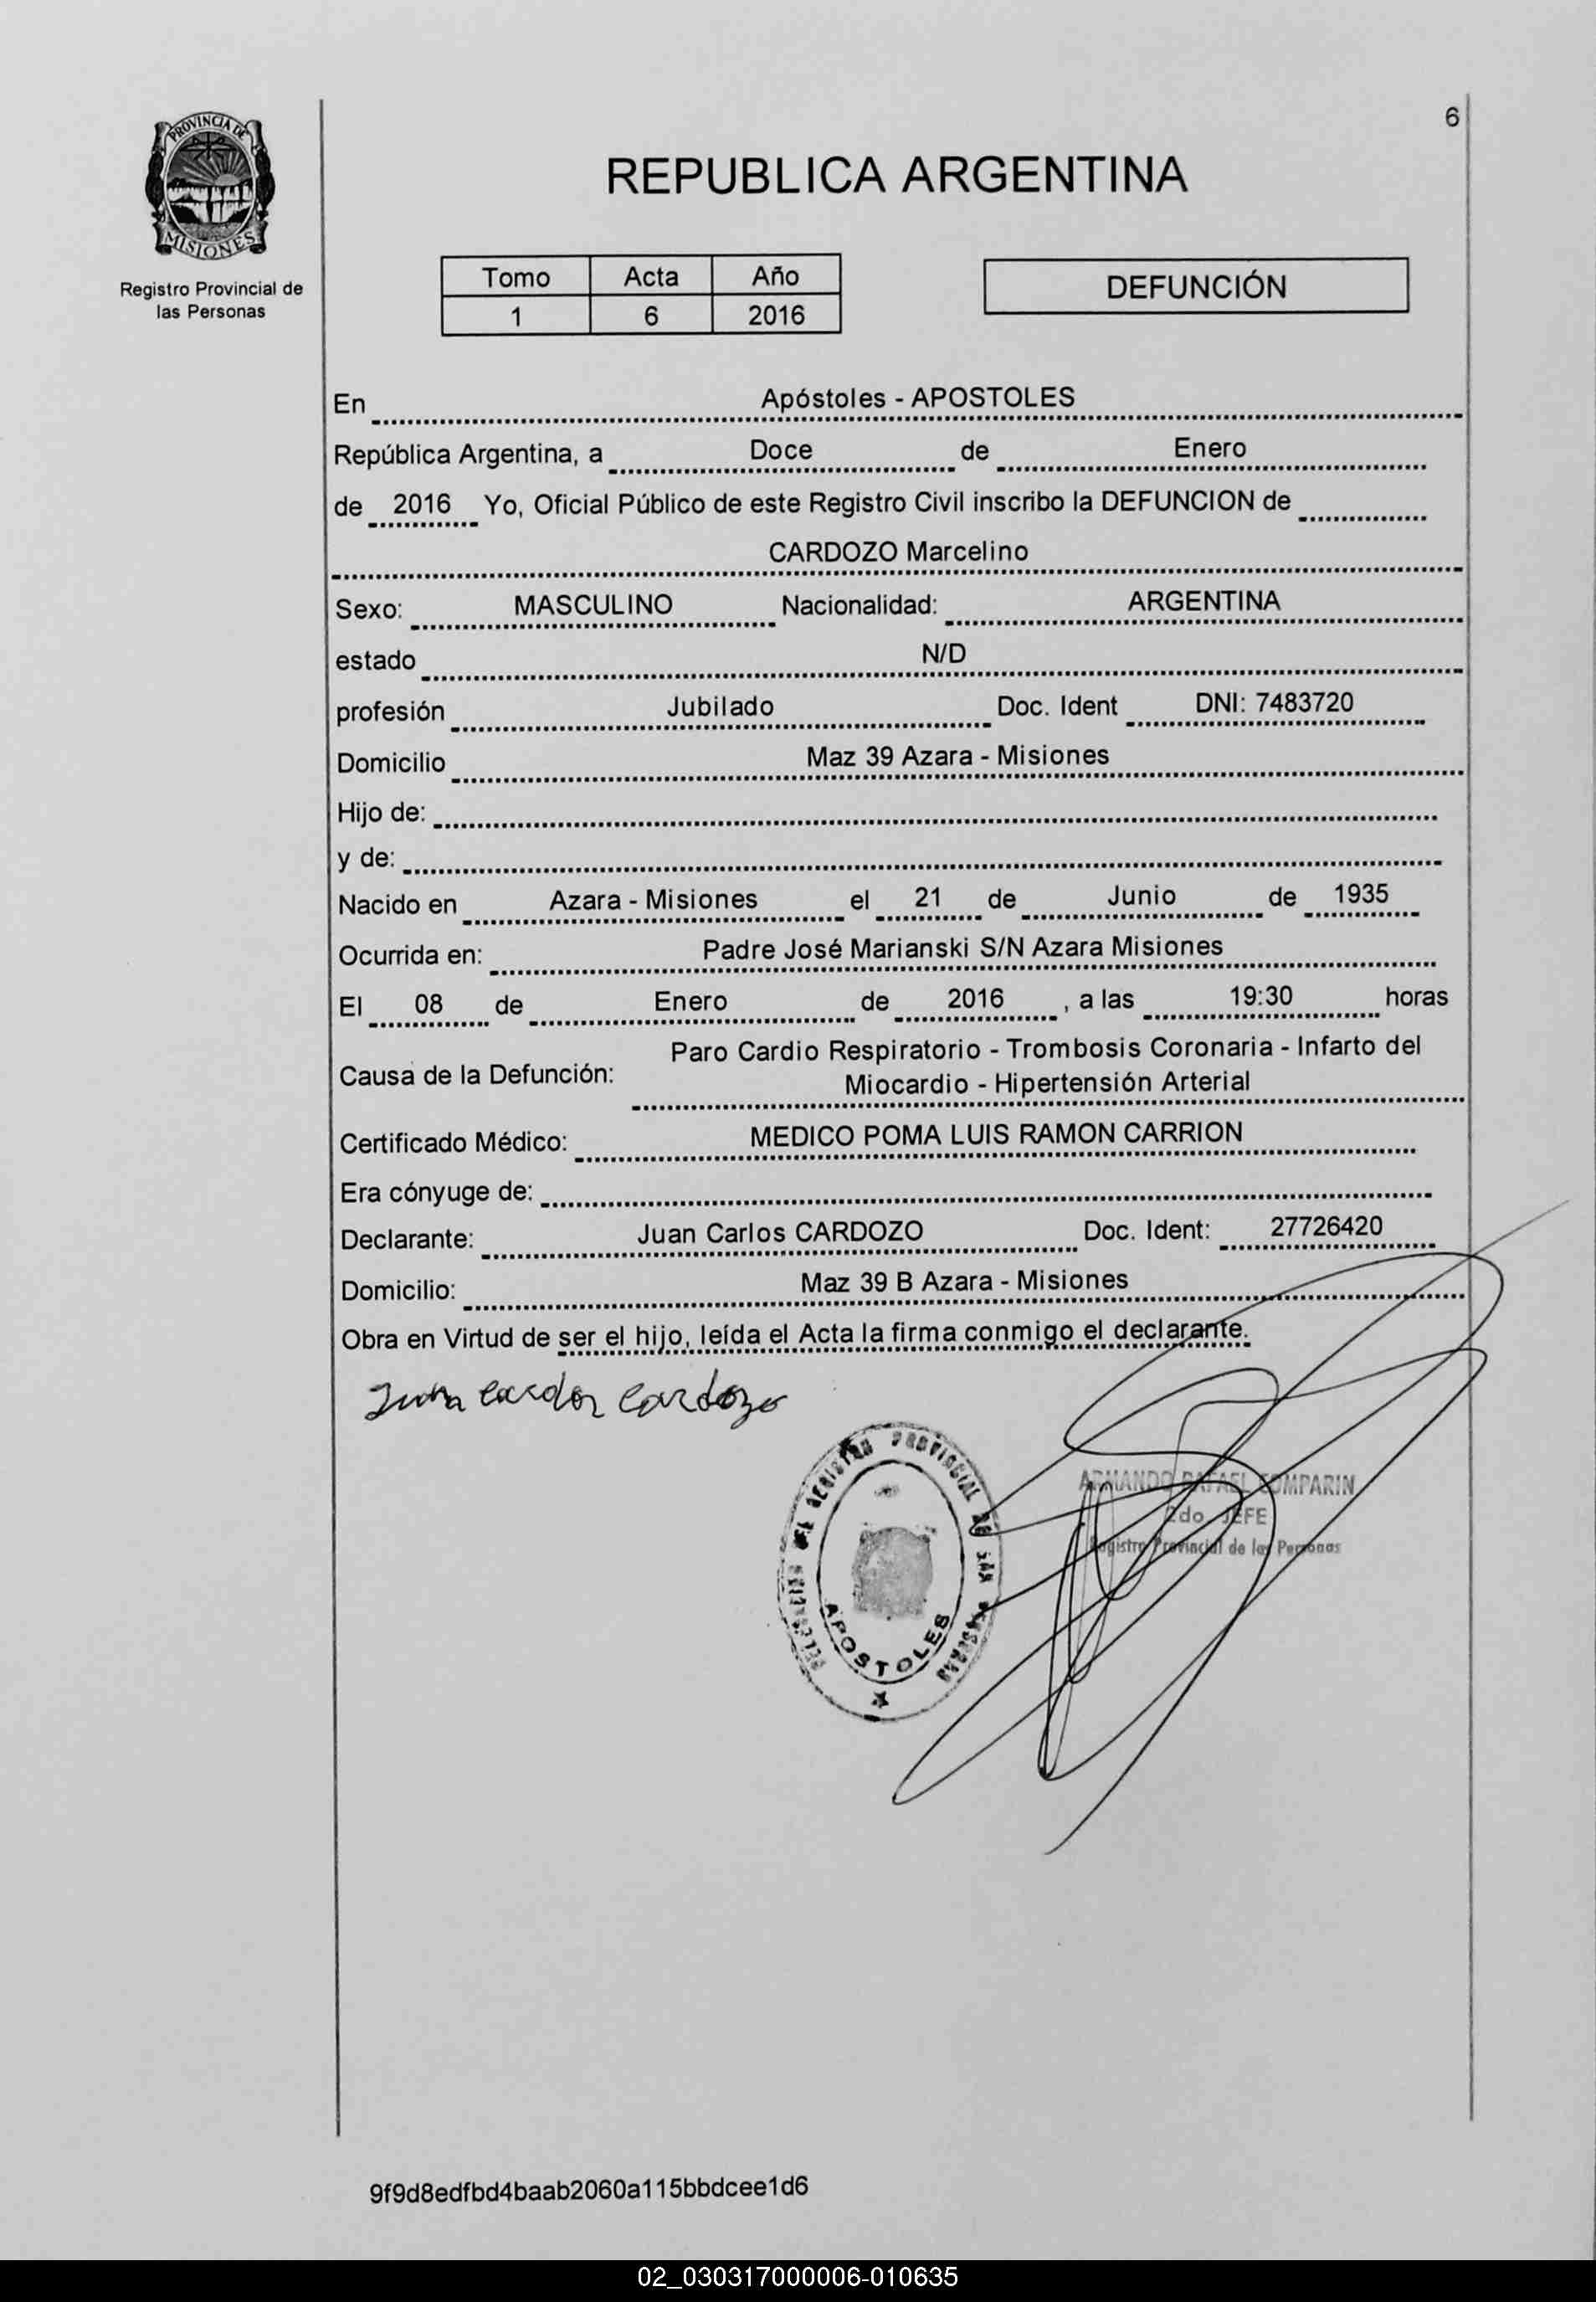 6
PROVINCIA DE
MISIONES
Registro Provincial de
las Personas
REPUBLICA ARGENTINA
Tomo Acta Año
1 6 2016
DEFUNCIÓN
En Apóstoles - APOSTOLES
República Argentina, a Doce de Enero
de 2016 Yo, Oficial Público de este Registro Civil inscribo la DEFUNCION de
CARDOZO Marcelino
Sexo: MASCULINO Nacionalidad: ARGENTINA
estado N/D
profesión Jubilado Doc. Ident DNI: 7483720
Domicilio Maz 39 Azara - Misiones
Hijo de:
y de:
Nacido en Azara - Misiones el 21 de Junio de 1935
Ocurrida en: Padre José Marianski S/N Azara Misiones
El 08 de Enero de 2016 , a las 19:30 horas
Causa de la Defunción: Paro Cardio Respiratorio - Trombosis Coronaria - Infarto del
Miocardio - Hipertensión Arterial
Certificado Médico: MEDICO POMA LUIS RAMON CARRION
Era cónyuge de:
Declarante: Juan Carlos CARDOZO Doc. Ident: 27726420
Domicilio: Maz 39 B Azara - Misiones
Obra en Virtud de ser el hijo, leída el Acta la firma conmigo el declarante.
Juan Cardoz Cardozo
DEL REGISTRO PROVINCIAL DE LAS PERSONAS
APOSTOLES
ARMANDO RAFAEL COMPARIN
2do JEFE
Registro Provincial de las Personas
9f9d8edfbd4baab2060a115bbdcee1d6
02_030317000006-010635